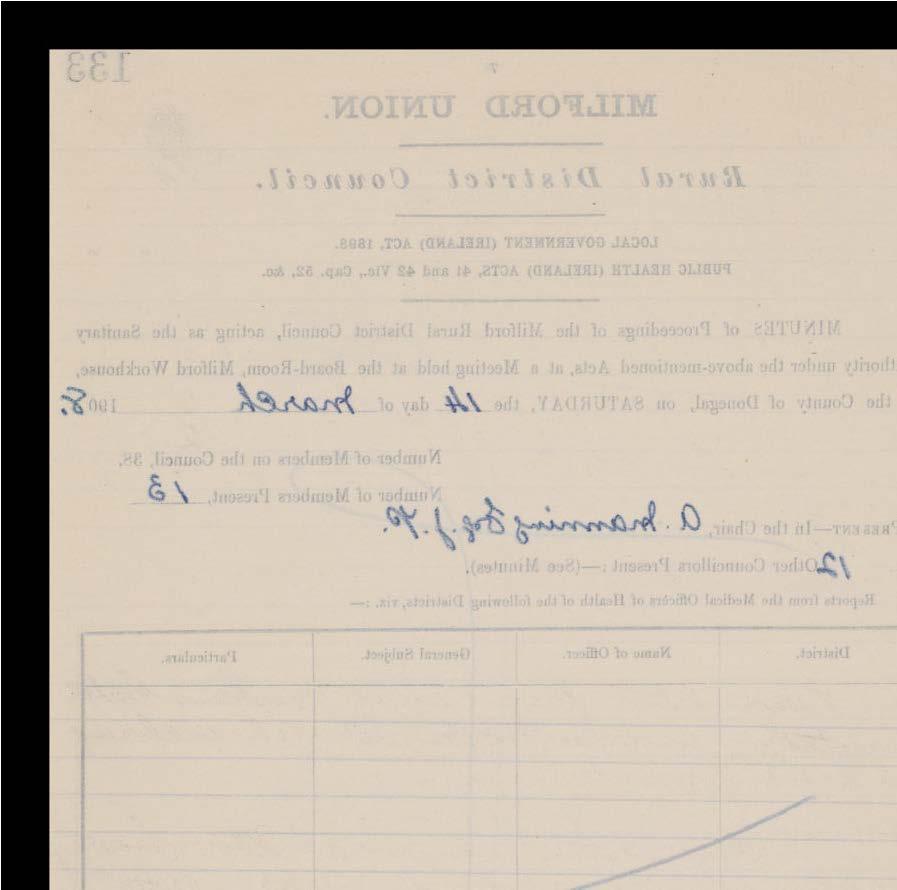 133
7
MILFORD UNION.
Rural District Council.
LOCAL GOVERNMENT (IRELAND) ACT, 1898.
PUBLIC HEALTH (IRELAND) ACTS, 41 and 42 Vic., Cap. 52, &c.
MINUTES of Proceedings of the Milford Rural District Council, acting as the Sanitary
thority under the above-mentioned Acts, at a Meeting held at the Board-Room, Milford Workhouse,
the County of Donegal, on SATURDAY, the 14 day of March 1908.
Number of Members on the Council, 38.
Number of Members Present, 13
PRESENT—In the Chair, A. Manning Esq. J.P.
12 Other Councillors Present :—(See Minutes).
Reports from the Medical Officers of Health of the following Districts, viz. :—
District. Name of Officer. General Subject. Particulars.